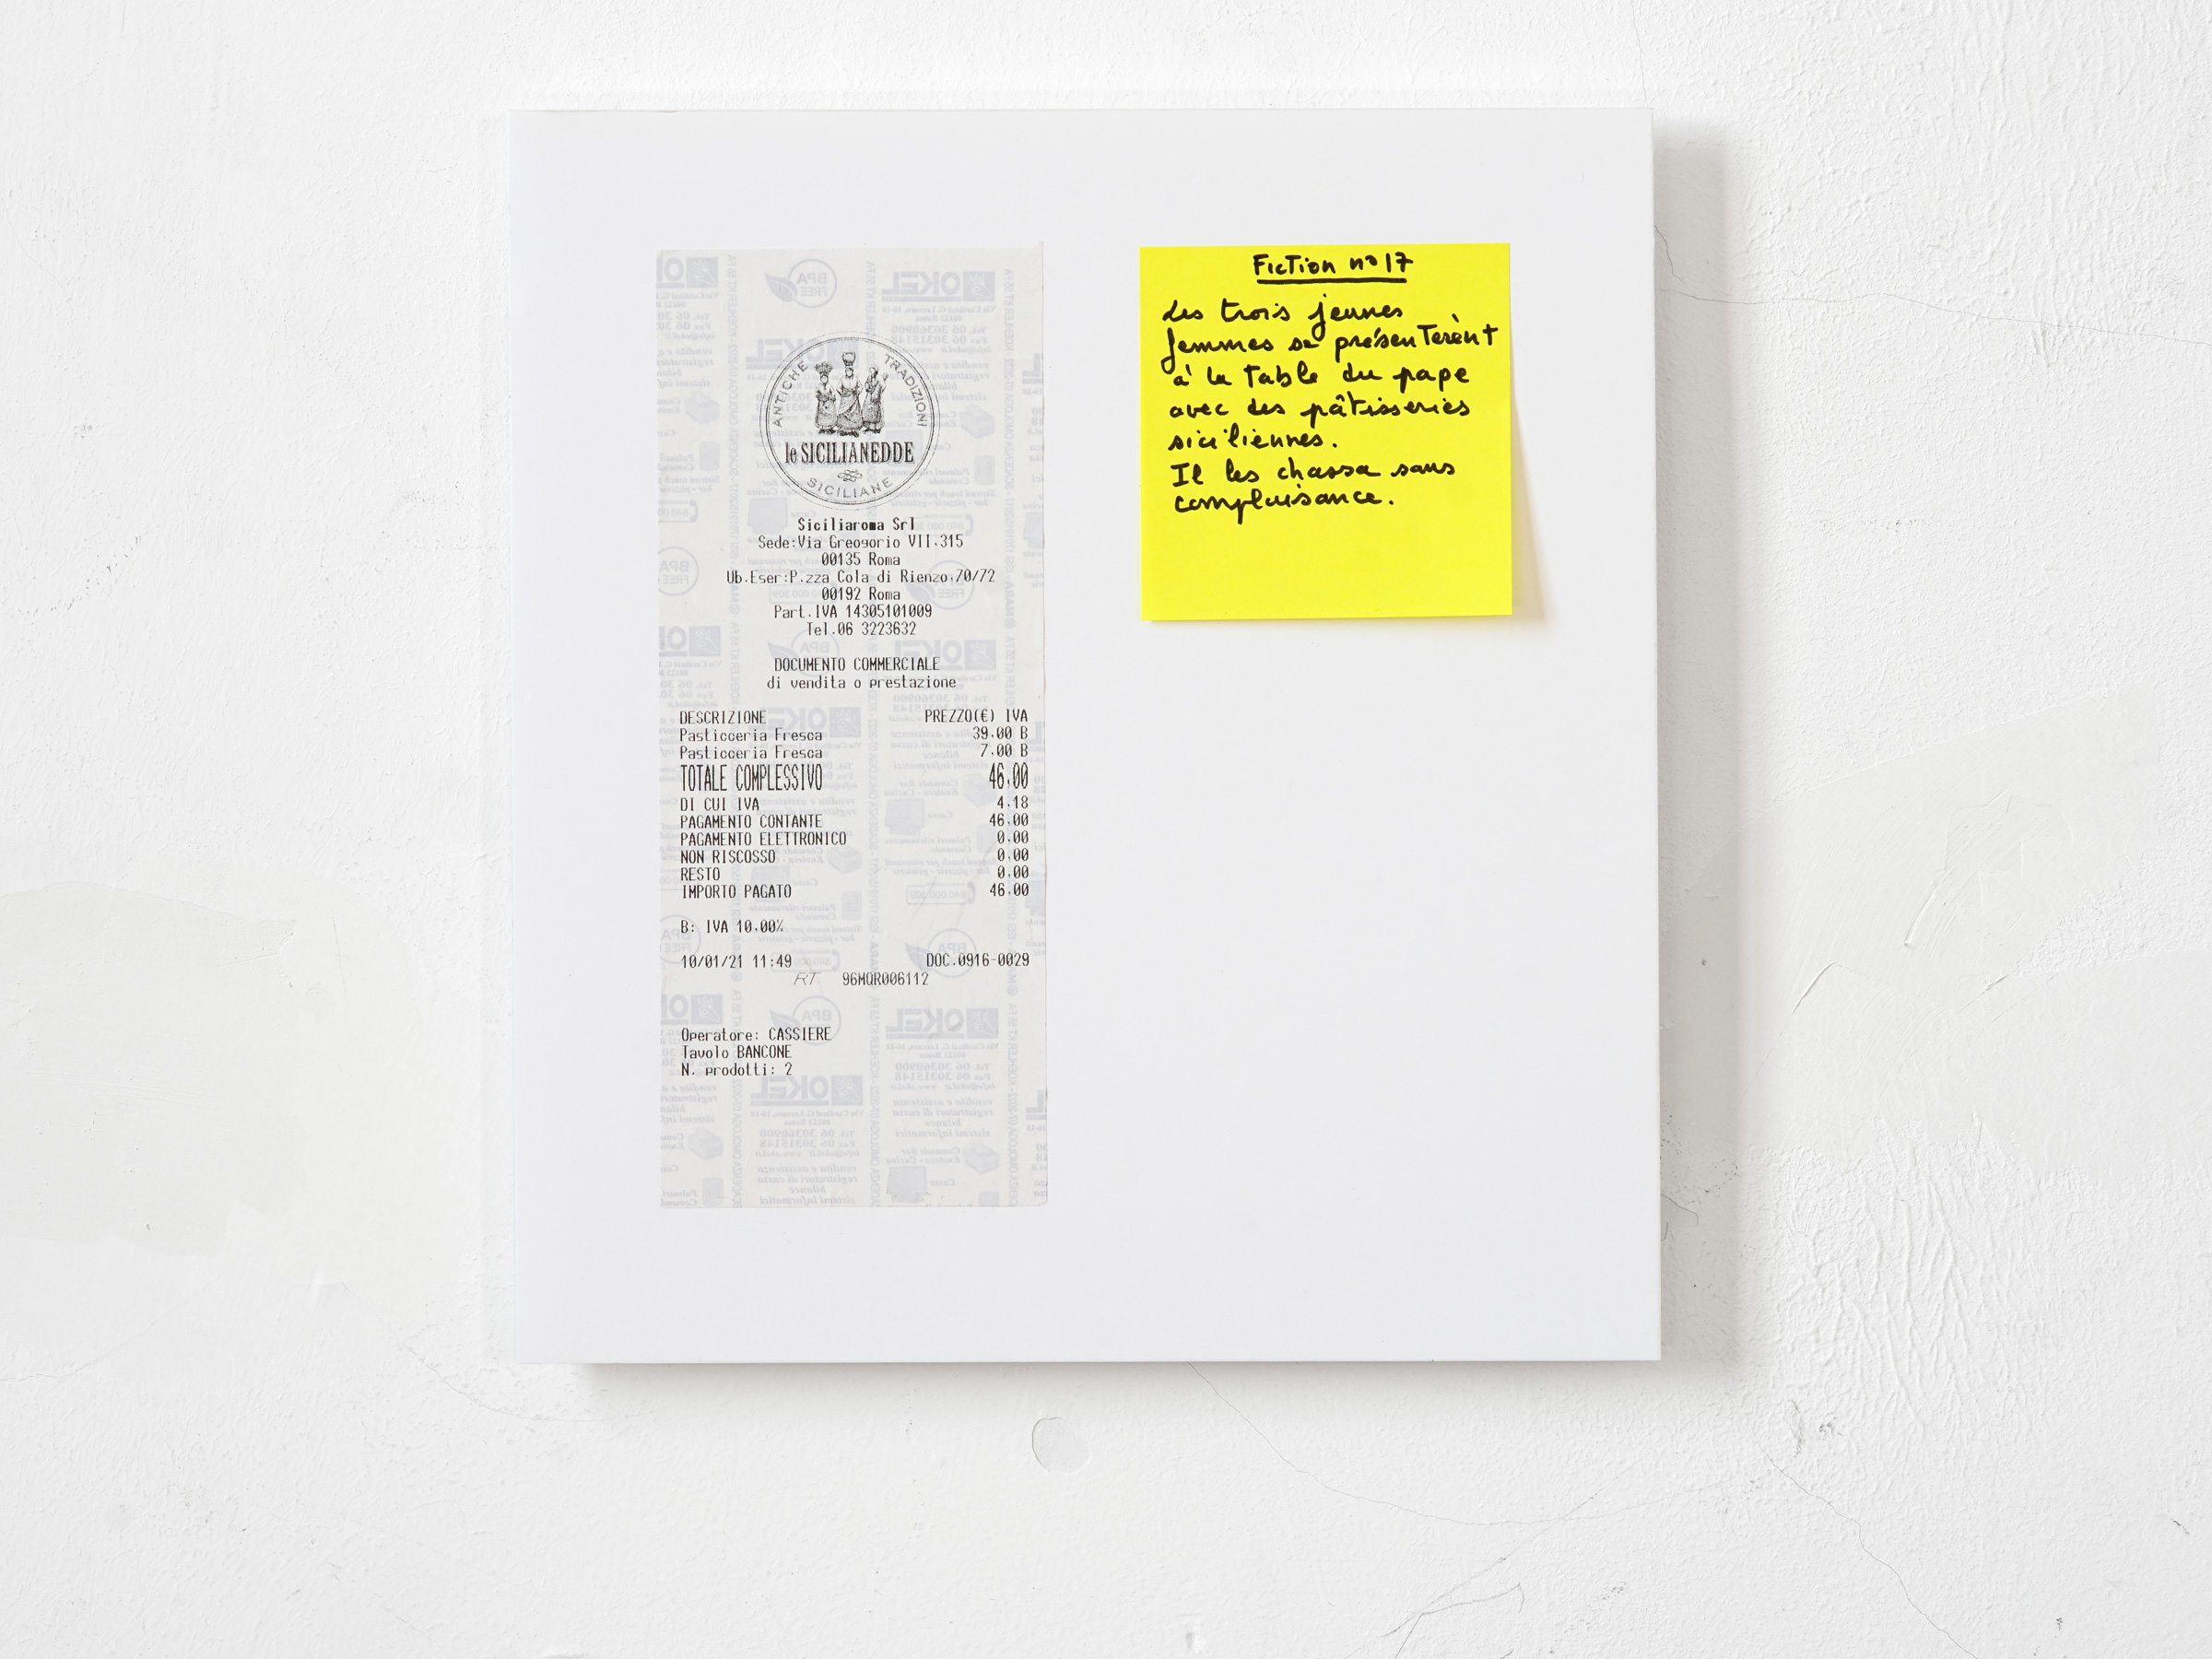 ANTICHE TRADIZIONI
le SICILIANEDDE
SICILIANE
Siciliaroma Srl
Sede:Via Greogorio VII,315
00135 Roma
Ub.Eser:P.zza Cola di Rienzo,70/72
00192 Roma
Part.IVA 14305101009
Tel.06 3223632
DOCUMENTO COMMERCIALE
di vendita o prestazione
DESCRIZIONE PREZZO(€) IVA
Pasticceria Fresca 39,00 B
Pasticceria Fresca 7,00 B
TOTALE COMPLESSIVO 46,00
DI CUI IVA 4,18
PAGAMENTO CONTANTE 46,00
PAGAMENTO ELETTRONICO 0,00
NON RISCOSSO 0,00
RESTO 0,00
IMPORTO PAGATO 46,00
B: IVA 10,00%
10/01/21 11:49 DOC.0916-0029
RT 96MQR006112
Operatore: CASSIERE
Tavolo BANCONE
N. prodotti: 2
Fiction nº 17
Les trois jeunes
femmes se présentèrent
à la table du pape
avec des pâtisseries
siciliennes.
Il les chassa sans
complaisance.